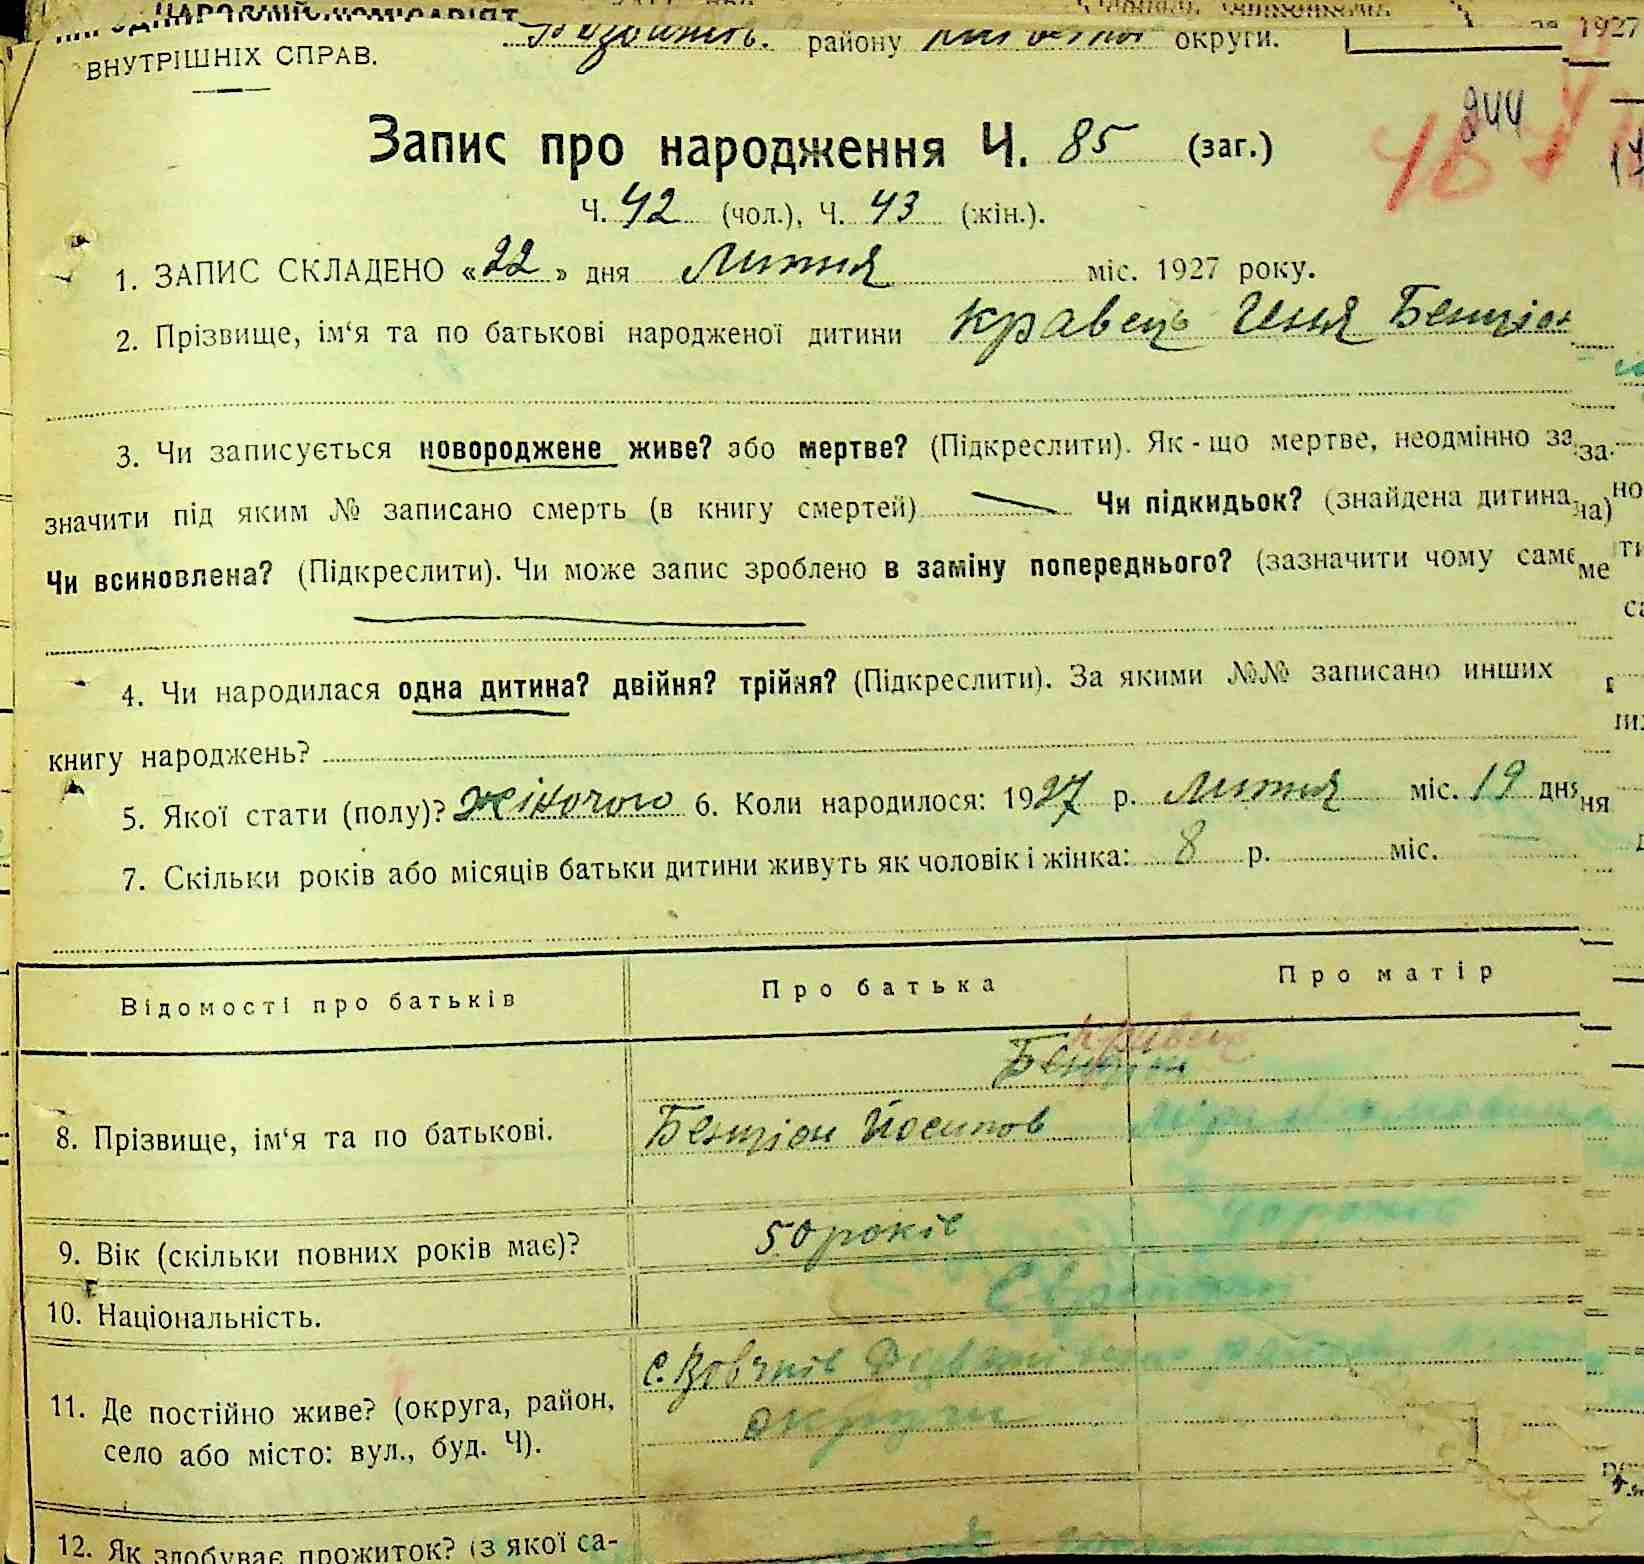 НАРОДНІЙ КОМІСАРІЯТ
ВНУТРІШНІХ СПРАВ.
району округи.
1927
844
Запис про народження Ч. 85 (заг.)
Ч. 42 (чол.), Ч. 43 (жін.).
1. ЗАПИС СКЛАДЕНО «22» дня Липня міс. 1927 року.
2. Прізвище, ім‘я та по батькові народженої дитини Кравець Геня Бенціон
3. Чи записується новороджене живе? або мертве? (Підкреслити). Як-що мертве, неодмінно за-
значити під яким № записано смерть (в книгу смертей) Чи підкидьок? (знайдена дитина)
Чи всиновлена? (Підкреслити). Чи може запис зроблено в заміну попереднього? (зазначити чому саме
4. Чи народилася одна дитина? двійня? трійня? (Підкреслити). За якими №№ записано инших
книгу народжень?
5. Якої стати (полу)? жіночого 6. Коли народилося: 1927 р. Липня міс. 19 дня
7. Скільки років або місяців батьки дитини живуть як чоловік і жінка: 8 р. — міс.
Відомості про батьків Про батька Про матір
Кравець
8. Прізвище, ім‘я та по батькові. Бенціон Йосипов
9. Вік (скільки повних років має)? 50 років 40 років
10. Національність. Євреї
11. Де постійно живе? (округа, район, с.
село або місто: вул., буд. Ч). округи
12. Як здобуває прожиток? (з якої са-